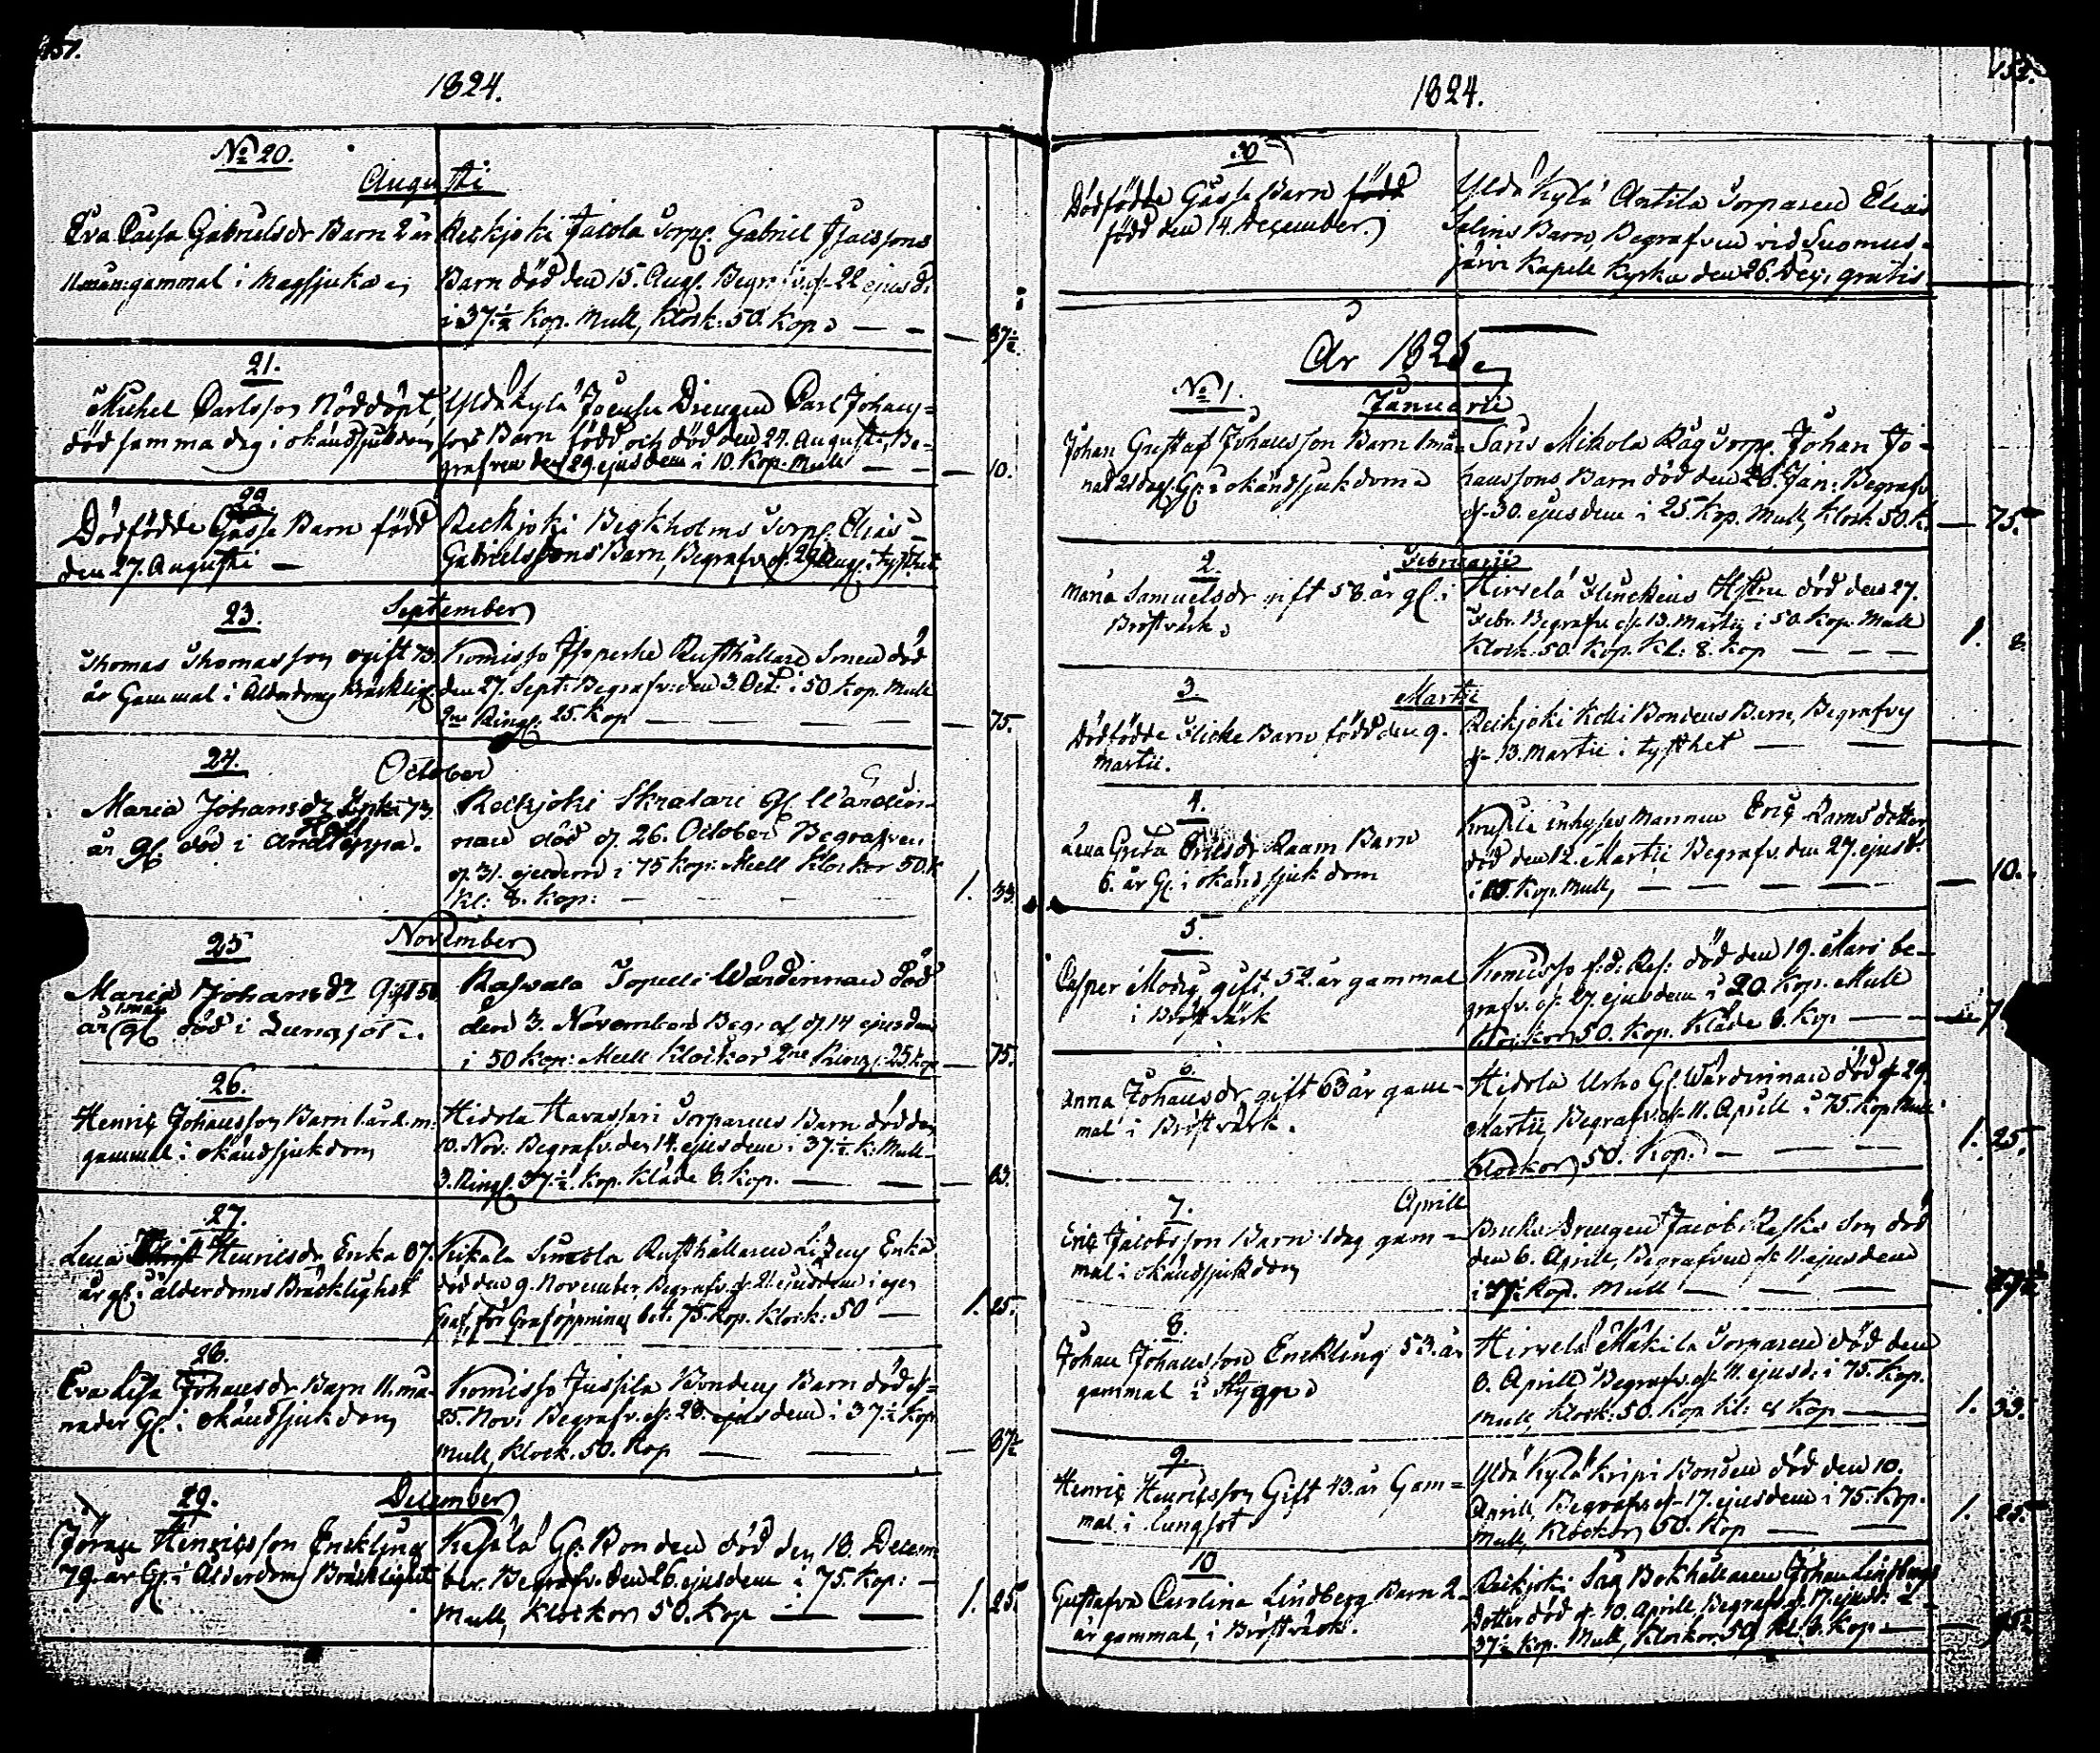 157.
1824.
No 20.
Augusti
Eva Caisa Gabrielsdr Barn 2 år
11 mån: gammal i Magsjuka
Reckjoki Jacola Torp. Gabriel Isacssons
Barn död den 15. Aug. Begr. d. 22 ejusd:
i 37½ Kop. Mull, Klock: 50. Kop — —
— 37½.
21.
Michel Carlsson Nöddöpt
död samma dag i okändsjukdom
Yldäkylä Drengen Carl Johans=
sons Barn född och död den 24. Augusti, Be-
grafven den 29. ejusdem i 10. Kop. Mull — —
— 10.
22.
Dödfödde Gosse Barn född
den 27. Augusti —
Reckjoki Torp. Elias
Gabrielssons Barn, Begrafv. d. 29 Aug. i tysthet
23.
September
Thomas Thomasson ogift 73.
år Gammal i Ålderdoms Bräcklig:
Komisso Rusthållare Sonen död
den 27. Sept: Begrafv: den 3. Oct: i 50 Kop. Mull
2ne Ring: 25. Kop — — — —
— 75.
24.
October
Maria Johansdr Enka 73.
år gl död i Andtäppa.
Reckjoki Skralari Gl. Wärdin-
nan död d. 26. October Begrafven
d. 31. ejusdem i 75 Kop: Mull Klockor 50. K
Kl: 8. Kop: — — —
1. 33.
25
November
Maria Johansdr Gift 50
år gl död i Lungsot.
Wärdinnan död
den 3. November Begraf d. 14 ejusdem
i 50 Kop: Mull Klockor 2ne Ring: 25 Kop
— 75.
26.
Henric Johansson Barn 1 år
gammal i okändsjukdom
Hidola Havassari Torparens Barn död den
10. Nov. Begrafv. den 14. ejusdem i 37½. K. Mull
3. Ring. 37½. Kop. Kläde 8. Kop. — —
— 83.
27.
Lena Henricsdr Enka 87.
år gl. i ålderdoms Bräcklighet
Kiskala Simola Rusthållaren Enka
död den 9. November, Begrafv. d. 21. ejusdem i egen
Graf, för Graföppning bet: 75. Kop. Klock: 50 —
1. 25.
28.
Eva Lisa Johansdr Barn 11. må-
nader Gl. i okändsjukdom
Komisso Jussila Bondens Barn död d.
25. Nov: Begrafv. d. 28. ejusdem i 37½ Kop.
Mull, Klock. 50. Kop — —
— 87½
29.
December
Jöran Henricsson Enckling
79. år Gl. i Ålderdoms Bräcklighet
Gl. Bonden död den 18. Decem
ber. Begrafv. den 26. ejusdem i 75. Kop: —
Mull, Klockor 50. Kop — —
1. 25.
1824.
30
Dödfödde Gosse Barn
född den 14. December.
Yldäkylä Antila Torparen Elias
Salins Barn, Begrafven vid Suomus-
järvi Kapell Kyrka den 26. Dec: gratis
År 1825.
No 1.
Januarii
Johan Gustaf Johansson Barn 1 må-
nad 21 dag. Gl. i okändsjukdom
Saris Mikola Torp. Johan Jo-
hanssons Barn död den 26. Jan: Begrafv
d. 30. ejusdem i 25. Kop. Mull, Klock 50. K. —
75.
2.
Februarii
Maria Samuelsdr gift 58. år gl. i
Bröstvärk.
Hirvelä Hstru död den 27.
Febr. Begrafv. d. 13. Martii i 50. Kop. Mull
Klock. 50. Kop. Kl: 8. Kop — — —
1. 8.
3.
Martii
Dödfödde Flicke Barn född den 9.
Martii.
Reckjoki Bondens Barn, Begrafven
d. 13. Martii i tysthet — —
4.
Lena Greta Ericsdr Raam Barn
6. år Gl. i okändsjukdom
Inhyses Mannen Eric Rams dotter
död den 12. Martii Begrafv. den 27. ejusd:
i 10. Kop. Mull, — — — —
— 10.
5.
Casper Modig, gift, 52. år gammal
i Bröstvärk
Komisso död den 19. Mars be-
grafv. d. 27. ejusdem i 20. Kop. Mull
Klockor 50. Kop. Kläde 8. Kop — —
6.
Anna Johansdr, gift 63 år gam-
mal i Bröstvärk.
Hidola Uske Gl. Wärdinnan död d. 29.
Martii Begrafv. d. 11. Aprill i 75. Kop. Mull
Klockor 50. Kop. — — —
1. 25.
7.
Aprill
Eric Jacobsson Barn 1 dag gam=
mal i okändsjukdom
Drengen Jacob Son död
den 6. Aprill, Begrafven d. 11. ejusdem
i 37½ Kop. Mull — — —
— 37½
8.
Johan Johansson Enckling 53. år
gammal i Stygge
Hirvelä Mäkilä Torparen död den
8. Aprill Begrafv. d. 11. ejusd: i 75. Kop.
Mull, Klock: 50. Kop. Kl: 8 Kop —
1. 33.
9.
Henric Henricsson Gift 43. år Gam=
mal i Lungsot
Yldäkylä Kripi Bonden död den 10.
Aprill, Begrafv. d. 17. ejusdem i 75. Kop.
Mull, Klockor 50. Kop — —
1. 25.
10
Gustafva Carolina Lindberg Barn 2
år gammal, i Bröstvärk.
Reckjoki Såg Bokhållaren Johan Lindbergs
Dotter död d. 10. Aprill, Begrafv. d. 17. ejusd: i
37½ Kop. Mull, Klockor 50 Kl. 8. Kop. —